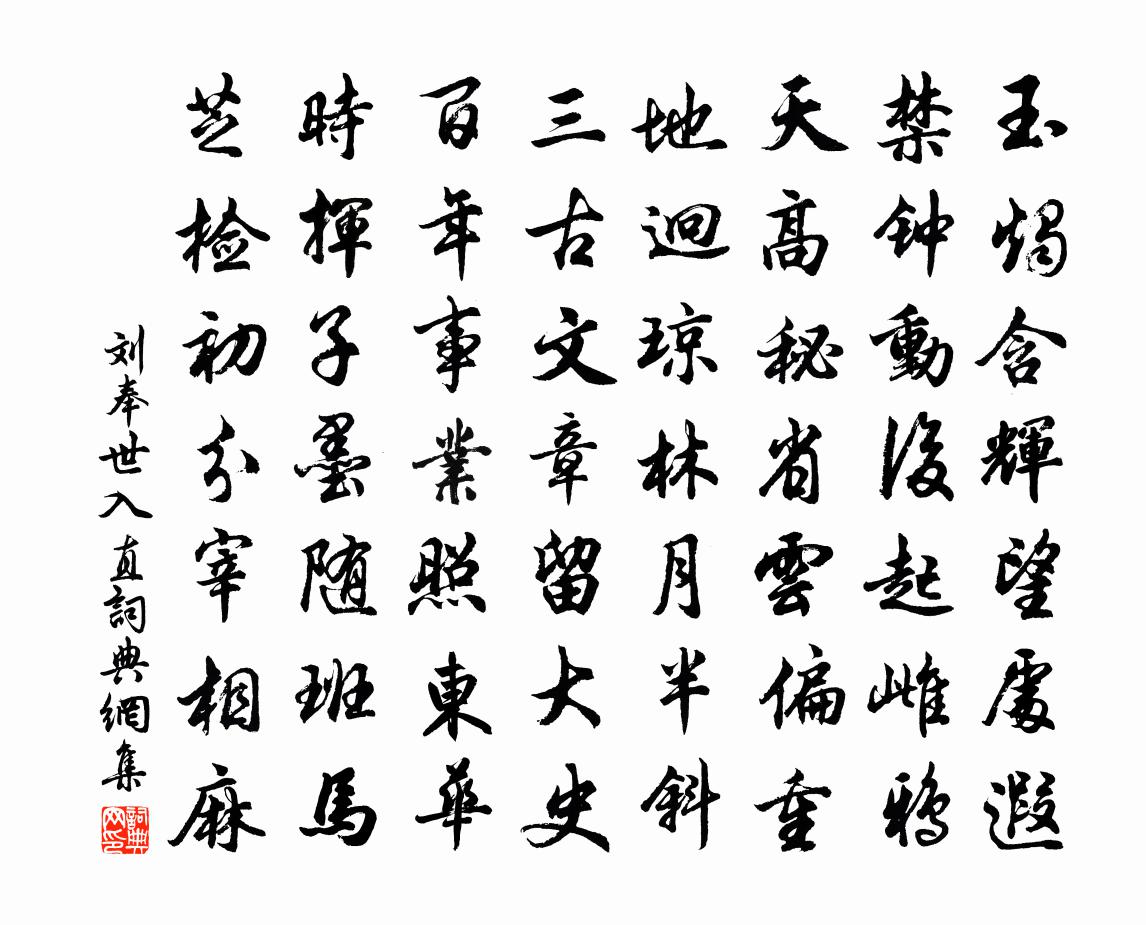 玉燭含輝望處遐
禁钟動後起雌鴉
天高秘省雲偏重
地迥琼林月半斜
三古文章留大史
百年事業照東華
時揮子墨随班馬
芝检初分宰相麻
刘奉世入直詞典網集
詞典网印